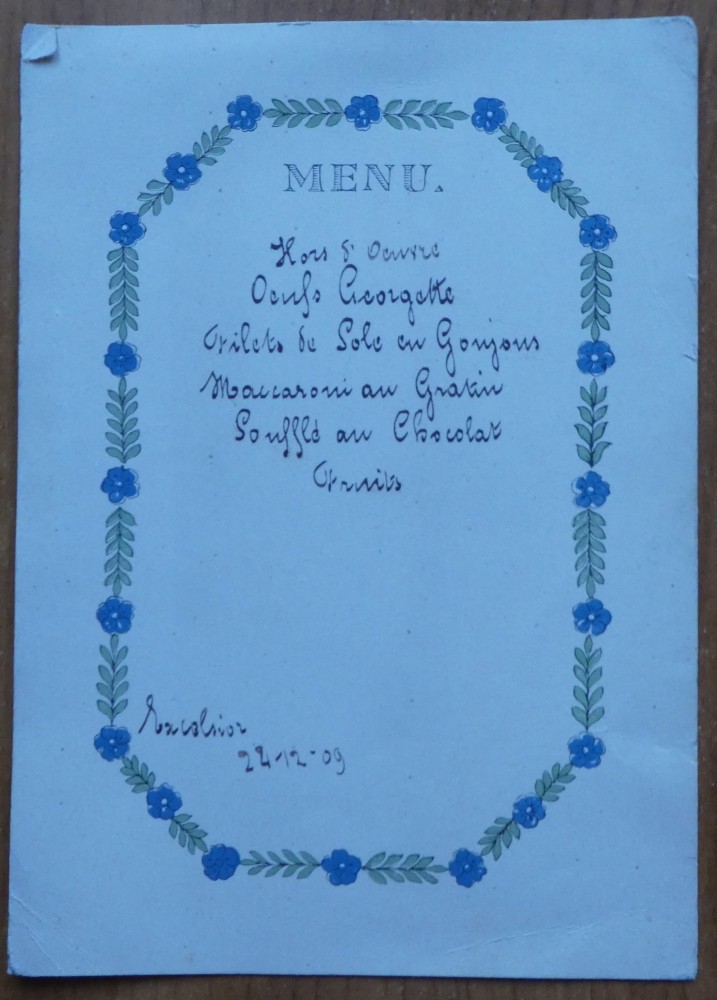 MENU.
Hors d'Oeuvre
Oeufs Georgette
Filets de Sole en Goujons
Maccaroni au Gratin
Soufflé au Chocolat
Fruits
Excelsior
24-12-09